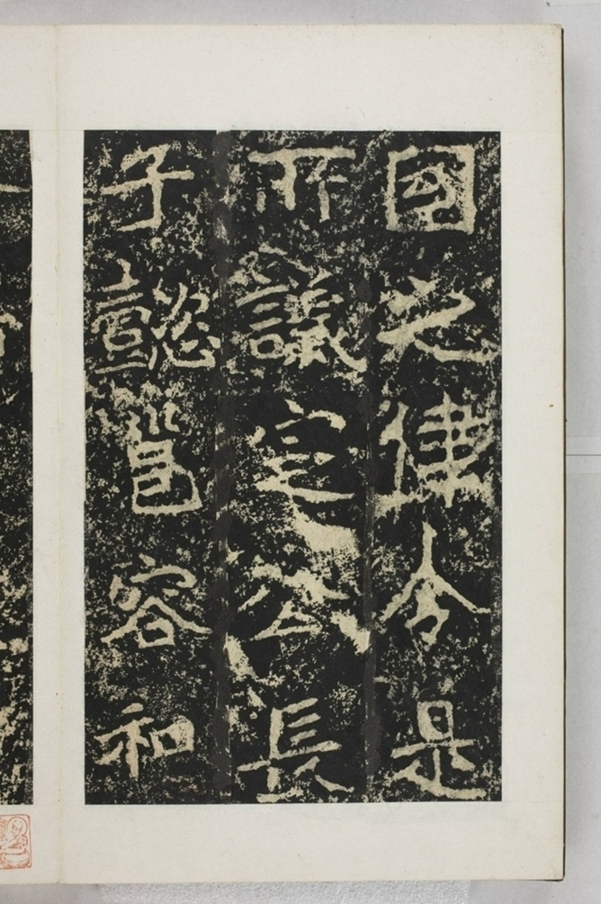 國之律令是
所議定公長
子懿邕容和